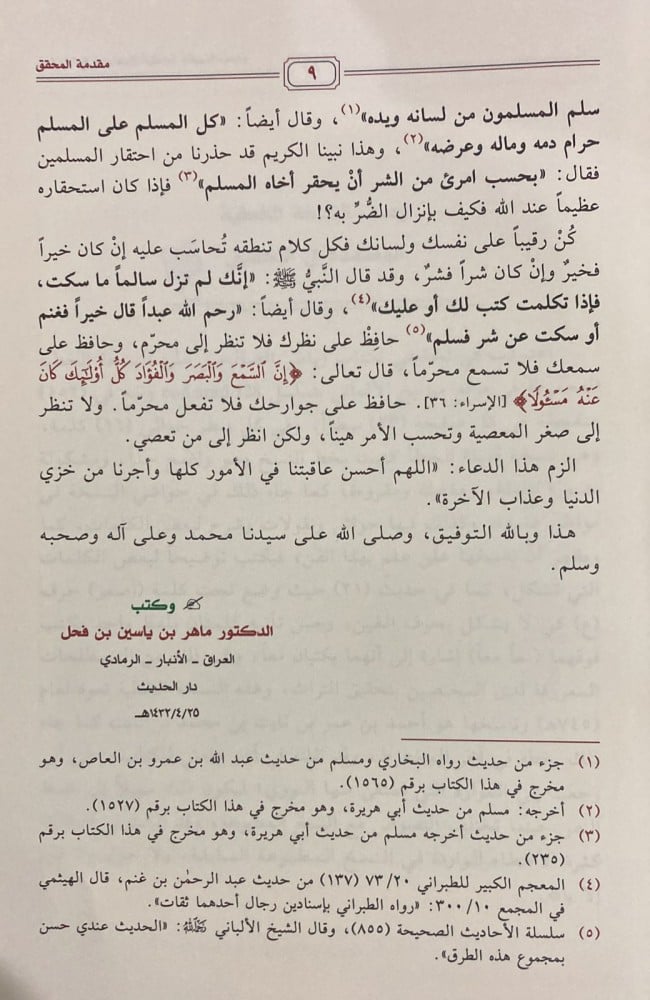 مقدمة المحقق
٩
سلم المسلمون من لسانه ويده»(١)، وقال أيضاً: «كل المسلم على المسلم
حرام دمه وماله وعرضه»(٢)، وهذا نبينا الكريم قد حذرنا من احتقار المسلمين
فقال: «بحسب امرئ من الشر أنْ يحقر أخاه المسلم»(٣) فإذا كان استحقاره
عظيماً عند الله فكيف بإنزال الضُّرِّ به؟!
كُنْ رقيباً على نفسك ولسانك فكل كلام تنطقه تُحاسَب عليه إنْ كان خيراً
فخيرٌ وإنْ كان شراً فشرٌ، وقد قال النَّبيُّ ﷺ: «إنَّك لم تزل سالماً ما سكت،
فإذا تكلمت كتب لك أو عليك»(٤)، وقال أيضاً: «رحم الله عبداً قال خيراً فغنم
أو سكت عن شر فسلم»(٥) حافِظْ على نظرك فلا تنظر إلى محرّم، وحافظ على
سمعك فلا تسمع محرّماً، قال تعالى: ﴿إِنَّ ٱلسَّمْعَ وَٱلْبَصَرَ وَٱلْفُؤَادَ كُلُّ أُوْلَٰٓئِكَ كَانَ
عَنْهُ مَسْـُٔولًا﴾ [الإسراء: ٣٦]. حافظ على جوارحك فلا تفعل محرّماً. ولا تنظر
إلى صغر المعصية وتحسب الأمر هيناً، ولكن انظر إلى من تعصي.
الزم هذا الدعاء: «اللهم أحسن عاقبتنا في الأمور كلها وأجرنا من خزي
الدنيا وعذاب الآخرة».
هذا وبالله التوفيق، وصلى الله على سيدنا محمد وعلى آله وصحبه
وسلم.
وكتب
الدكتور ماهر بن ياسين بن فحل
العراق ـ الأنبار ـ الرمادي
دار الحديث
١٤٣٢/٤/٢٥هـ
(١) جزء من حديث رواه البخاري ومسلم من حديث عبد الله بن عمرو بن العاص، وهو
مخرج في هذا الكتاب برقم (١٥٦٥).
(٢) أخرجه: مسلم من حديث أبي هريرة، وهو مخرج في هذا الكتاب برقم (١٥٢٧).
(٣) جزء من حديث أخرجه مسلم من حديث أبي هريرة، وهو مخرج في هذا الكتاب برقم
(٢٣٥).
(٤) المعجم الكبير للطبراني ٧٣/٢٠ (١٣٧) من حديث عبد الرحمٰن بن غنم، قال الهيثمي
في المجمع ٣٠٠/١٠: «رواه الطبراني بإسنادين رجال أحدهما ثقات».
(٥) سلسلة الأحاديث الصحيحة (٨٥٥)، وقال الشيخ الألباني رَحِمَهُ اللهُ: «الحديث عندي حسن
بمجموع هذه الطرق».